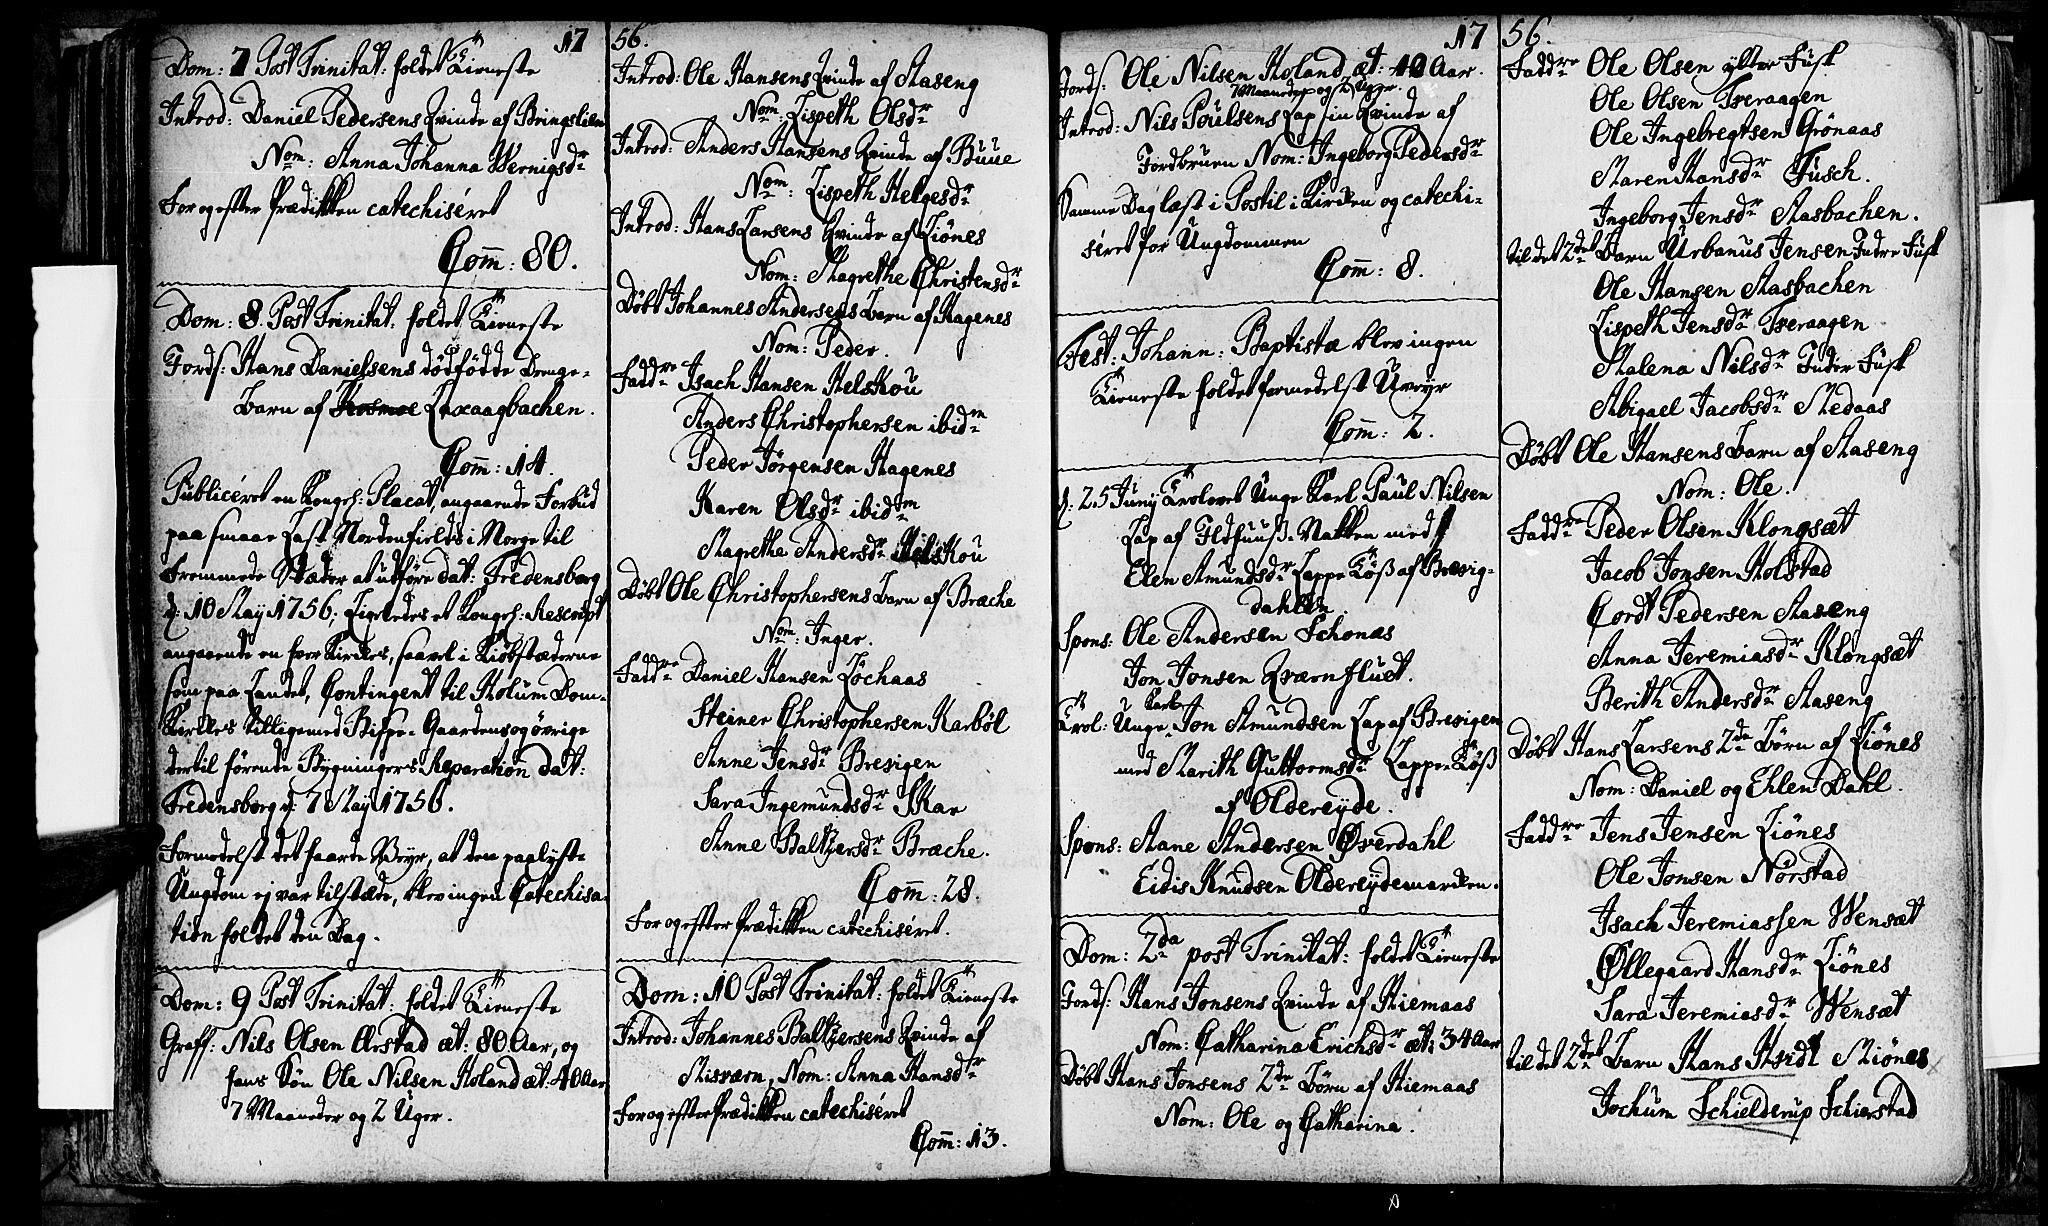 17
Dom: 7 Post Trinitat: holdet Tieneste
Introd: Daniel Pedersens Qvinde af Bringslien
Nom: Anna Johanna Wernigsdr
For og efter Prædikken catechiséret
Com̄: 80.
Dom: 8. Post Trinitat: holdet Tieneste
Jords: Hans Danielsens dödfödde Drenge-
Barn af Laxaagbachen.
Com̄: 14.
Publicéret en Kongel: Placat, angaaende Forbud
paa smaae Last Nordenfields i Norge til
Fremmede Stæder at udföre dat: Fredensborg
d: 10 May 1756; Ligeledes et Kongel: Rescript
angaaende en hver Kirkes, saavel i Kiöbstæderne
som paa Landet, Contingent til Holum Dom-
Kirkes tilligemed Bispe-Gaardens og övrige
dertil hörende Bygningers Reparation dat:
Fredensborg d: 7 May 1756.
Formedelst det haarde Veyr, at den paalyste
Ungdom ej var tilstæde, blev ingen Catechisa-
tion holdet den Dag.
Dom: 9 Post Trinitat: holdet Tieneste
Graff: Nils Olsen Arstad æt: 80 Aar, og
hans Sön Ole Nilsen Holand æt: 40 Aar
7 Maaneder og 2 Uger.
56.
Introd: Ole Hansens Qvinde af Aaseng
Nom: Lispeth Olsdr
Introd: Anders Hansens Qvinde af Buue
Nom: Lispeth Helgesdr
Introd: Hans Larsens Qvinde af Liönes
Nom: Magrethe Christensdr
Döbt Johannes Andersens Barn af Hagenes
Nom: Peder.
Faddre Isach Hansen Helskou
Anders Christophersen ibidm
Peder Jörgensen Hagenes
Karen Olsdr ibidm
Magrethe Andersdr Helskou
Döbt Ole Christophersens Barn af Bræche
Nom: Inger.
Faddre Daniel Hansen Löchaas
Steiner Christophersen Karböl
Anne Jensdr Bresigen
Sara Ingemundsdr Skar
Anne Baltzersdr Bræche.
Com̄: 28.
For og efter Prædikken catechiséret.
Dom: 10 Post Trinitat: holdet Tieneste
Introd: Johannes Baltzersens Qvinde af
Misværn, Nom: Anna Hansdr
For og efter Prædikken catechiséret
Com̄: 13.
17
Jords: Ole Nilsen Holand æt: 40 Aar.
7 Maaneder og 2 Uger.
Introd: Nils Poulsens Lap sin Qvinde af
Jordbruen Nom: Ingeborg Pedersdr
Samme Dag læst i Postil i Kirken og catechi-
séret for Ungdommen
Com̄: 8.
Fest: Johann: Baptistæ blev ingen
Tieneste holdet formedelst Uveyr
Com̄: 2.
d: 25 Juny Trolovet Unge Karl Paul Nilsen
Lap af Ildhuus-Nakken med
Elen Amundsdr Lappe Töß af Bresig-
dahlen.
Spons: Ole Andersen Schones
Jon Jonsen Qværnfluet.
Trol: Unge Karl Jon Amundsen Lap af Bresigen
med Marith Guttormsdr Lappe Töß
af Oldereyde.
Spons: Aane Andersen Øverdahl
Eidis Knudsen Oldereydemarken.
Dom: 2da post Trinitat: holdet Tieneste
Jords: Hans Jonsens Qvinde af Hiemaas
Nom: Catharina Erichsdr æt: 34 Aar
Döbt Hans Jonsens 2de Börn af Hiemaas
Nom: Ole og Catharina.
56.
Faddre Ole Olsen ytter Fusk
Ole Olsen Tveraagen
Ole Ingebregtsen Grönaas
Maren Hansdr Fusch.
Ingeborg Jensdr Aasbachen.
til det 2det Barn Urbanus Jensen Inder Fusk
Ole Hansen Aasbachen
Lispeth Jensdr Tveraagen
Malena Nilsdr Inder Fusk
Abigael Jacobsdr Medaas
Döbt Ole Hansens Barn af Aaseng
Nom: Ole.
Faddre Peder Olsen Klongsæt
Jacob Jonsen Holstad
Cort Pedersen Aaseng
Anna Jeremiasdr Klongsæt
Berith Andersdr Aaseng
Döbt Hans Larsens 2de Börn af Liönes
Nom: Daniel og Ehlen Dahl.
Faddre Jens Jensen Liönes
Ole Jonsen Nörstad
Isach Jeremiassen Wensæt
Øllegaard Hansdr Liönes
Sara Jeremiasdr Wensæt
til det 2det Barn Hans Hvidt Miönes
Jochum Schielderup Schierstad